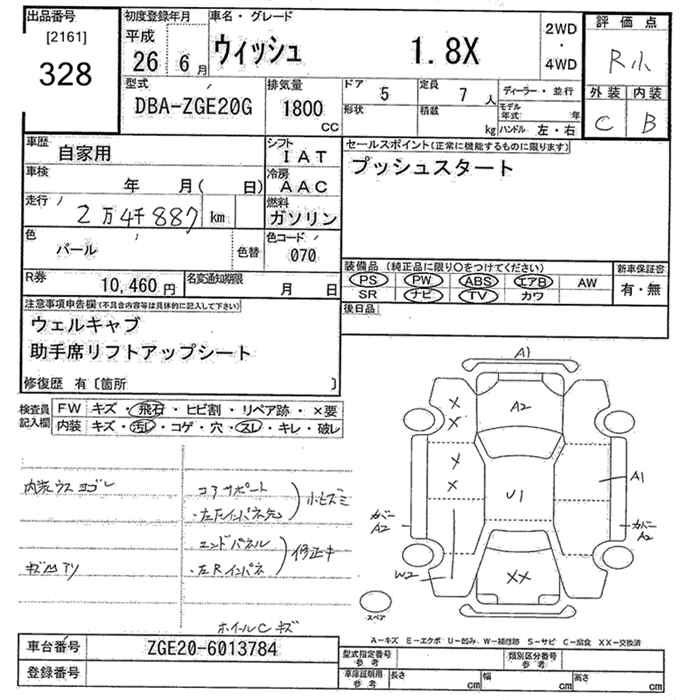 出品番号
[2161]
328
初度登録年月
平成
26 6月
車名・グレード
ウィッシュ 1.8X
2WD
・
4WD
評価点
R小
外装 内装
C B
型式
DBA-ZGE20G
排気量
1800
CC
ドア
5
定員
7 人
ディーラー・並行
形状
積載
kg
モデル年式 年
ハンドル 左・右
車歴
自家用
シフト
IAT
セールスポイント(正常に機能するものに限ります)
プッシュスタート
車検
年 月( 日)
冷房
AAC
走行
2万4千887 km
燃料
ガソリン
色
パール
色替
色コード
070
装備品 (純正品に限り○をつけてください)
新車保証書
PS PW ABS エアB AW
有・無
SR ナビ TV カワ
R券
10,460円
名変通知期限
月 日
後日品
注意事項申告欄(不具合内容等は具体的に記入して下さい)
ウェルキャブ
助手席リフトアップシート
修復歴 有〔箇所 〕
検査員記入欄
FW キズ・飛石・ヒビ割・リペア跡・×要
内装 キズ・汚レ・コゲ・穴・スレ・キレ・破レ
内装ウスヨゴレ
コアサポート
・左Fインパネ先
小ヒズミ
エンドパネル
・左Rインパネ
修正キ
キズ凹アリ
ホイールCキズ
A1
A2
X
X
X
X
U1
A1
カバー
A2
カバー
A2
W2
XX
スペア
A-キズ E-エクボ U-凹み W-補修跡 S-サビ C-腐食 XX-交換済
車台番号
ZGE20-6013784
登録番号
型式指定番号
参考
類別区分番号
参考
車庫証明用
参考
長さ cm
幅 cm
高さ cm